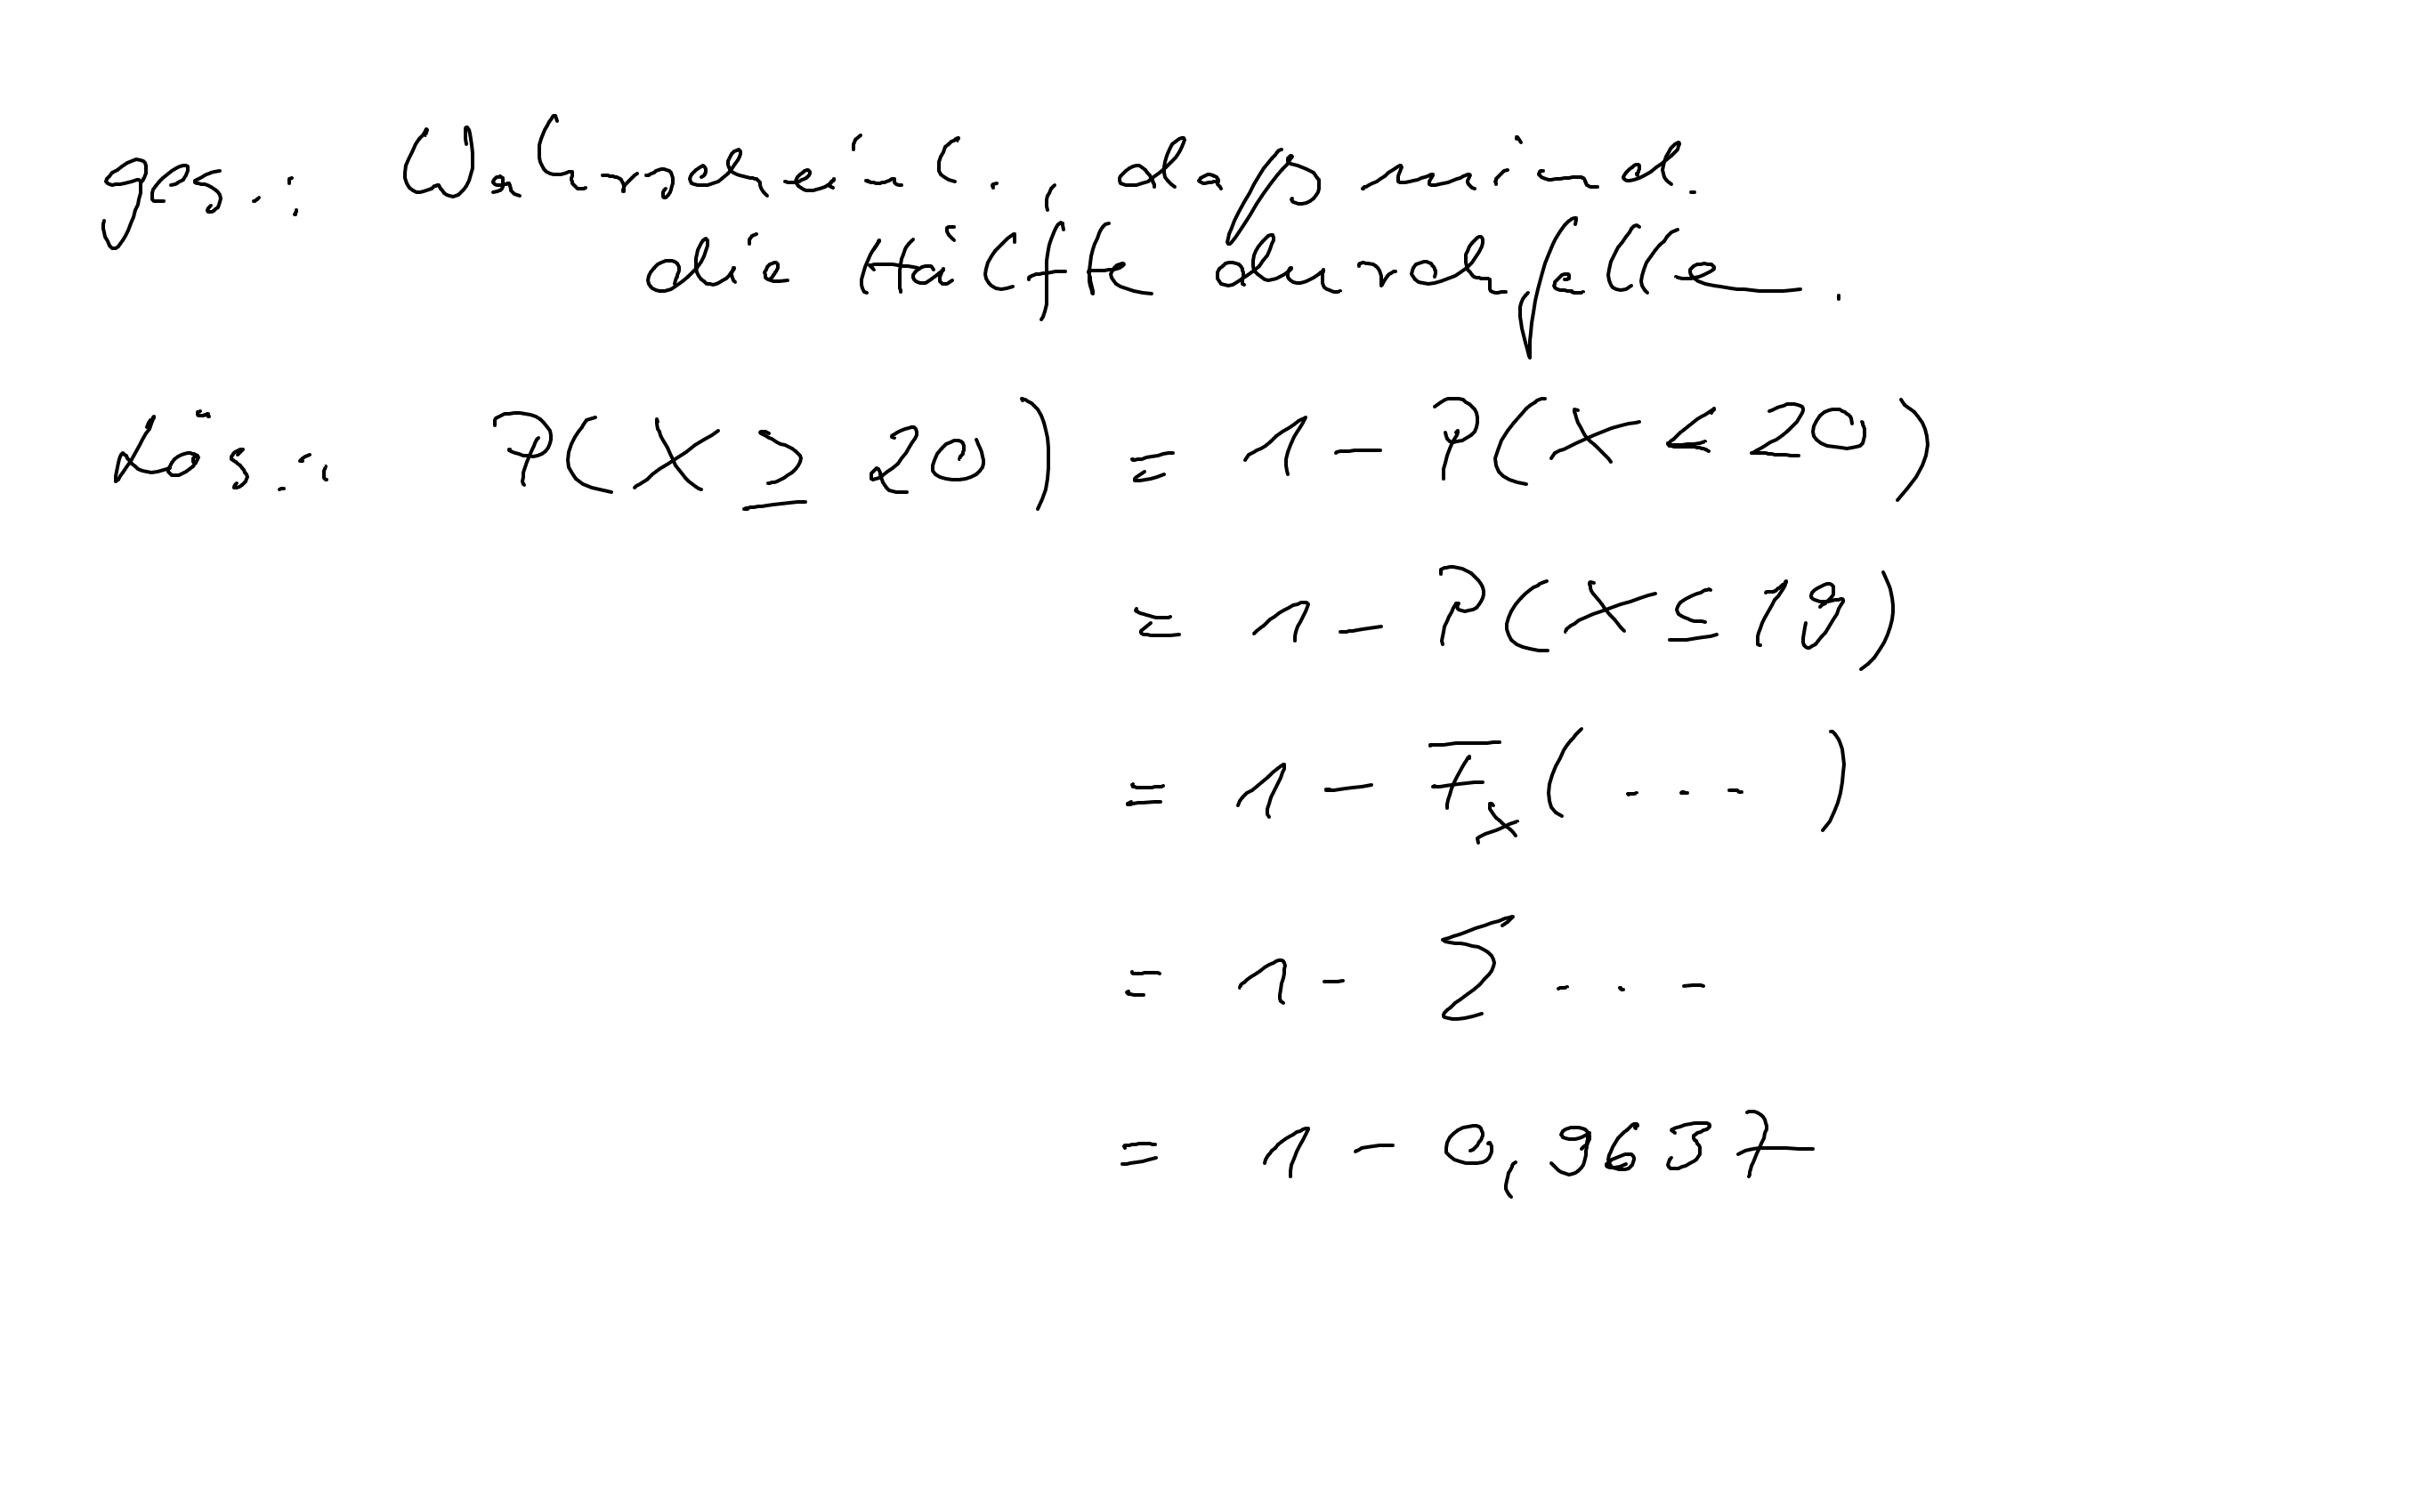 ges.: Wahrscheinl., daß mind.
die Hälfte durchfallen.
Lös.: P(X ≥ 20) = 1 - P(X < 20)
= 1 - P(X ≤ 19)
= 1 - F_X( ... )
= 1 - Σ ...
= 1 - 0,9637